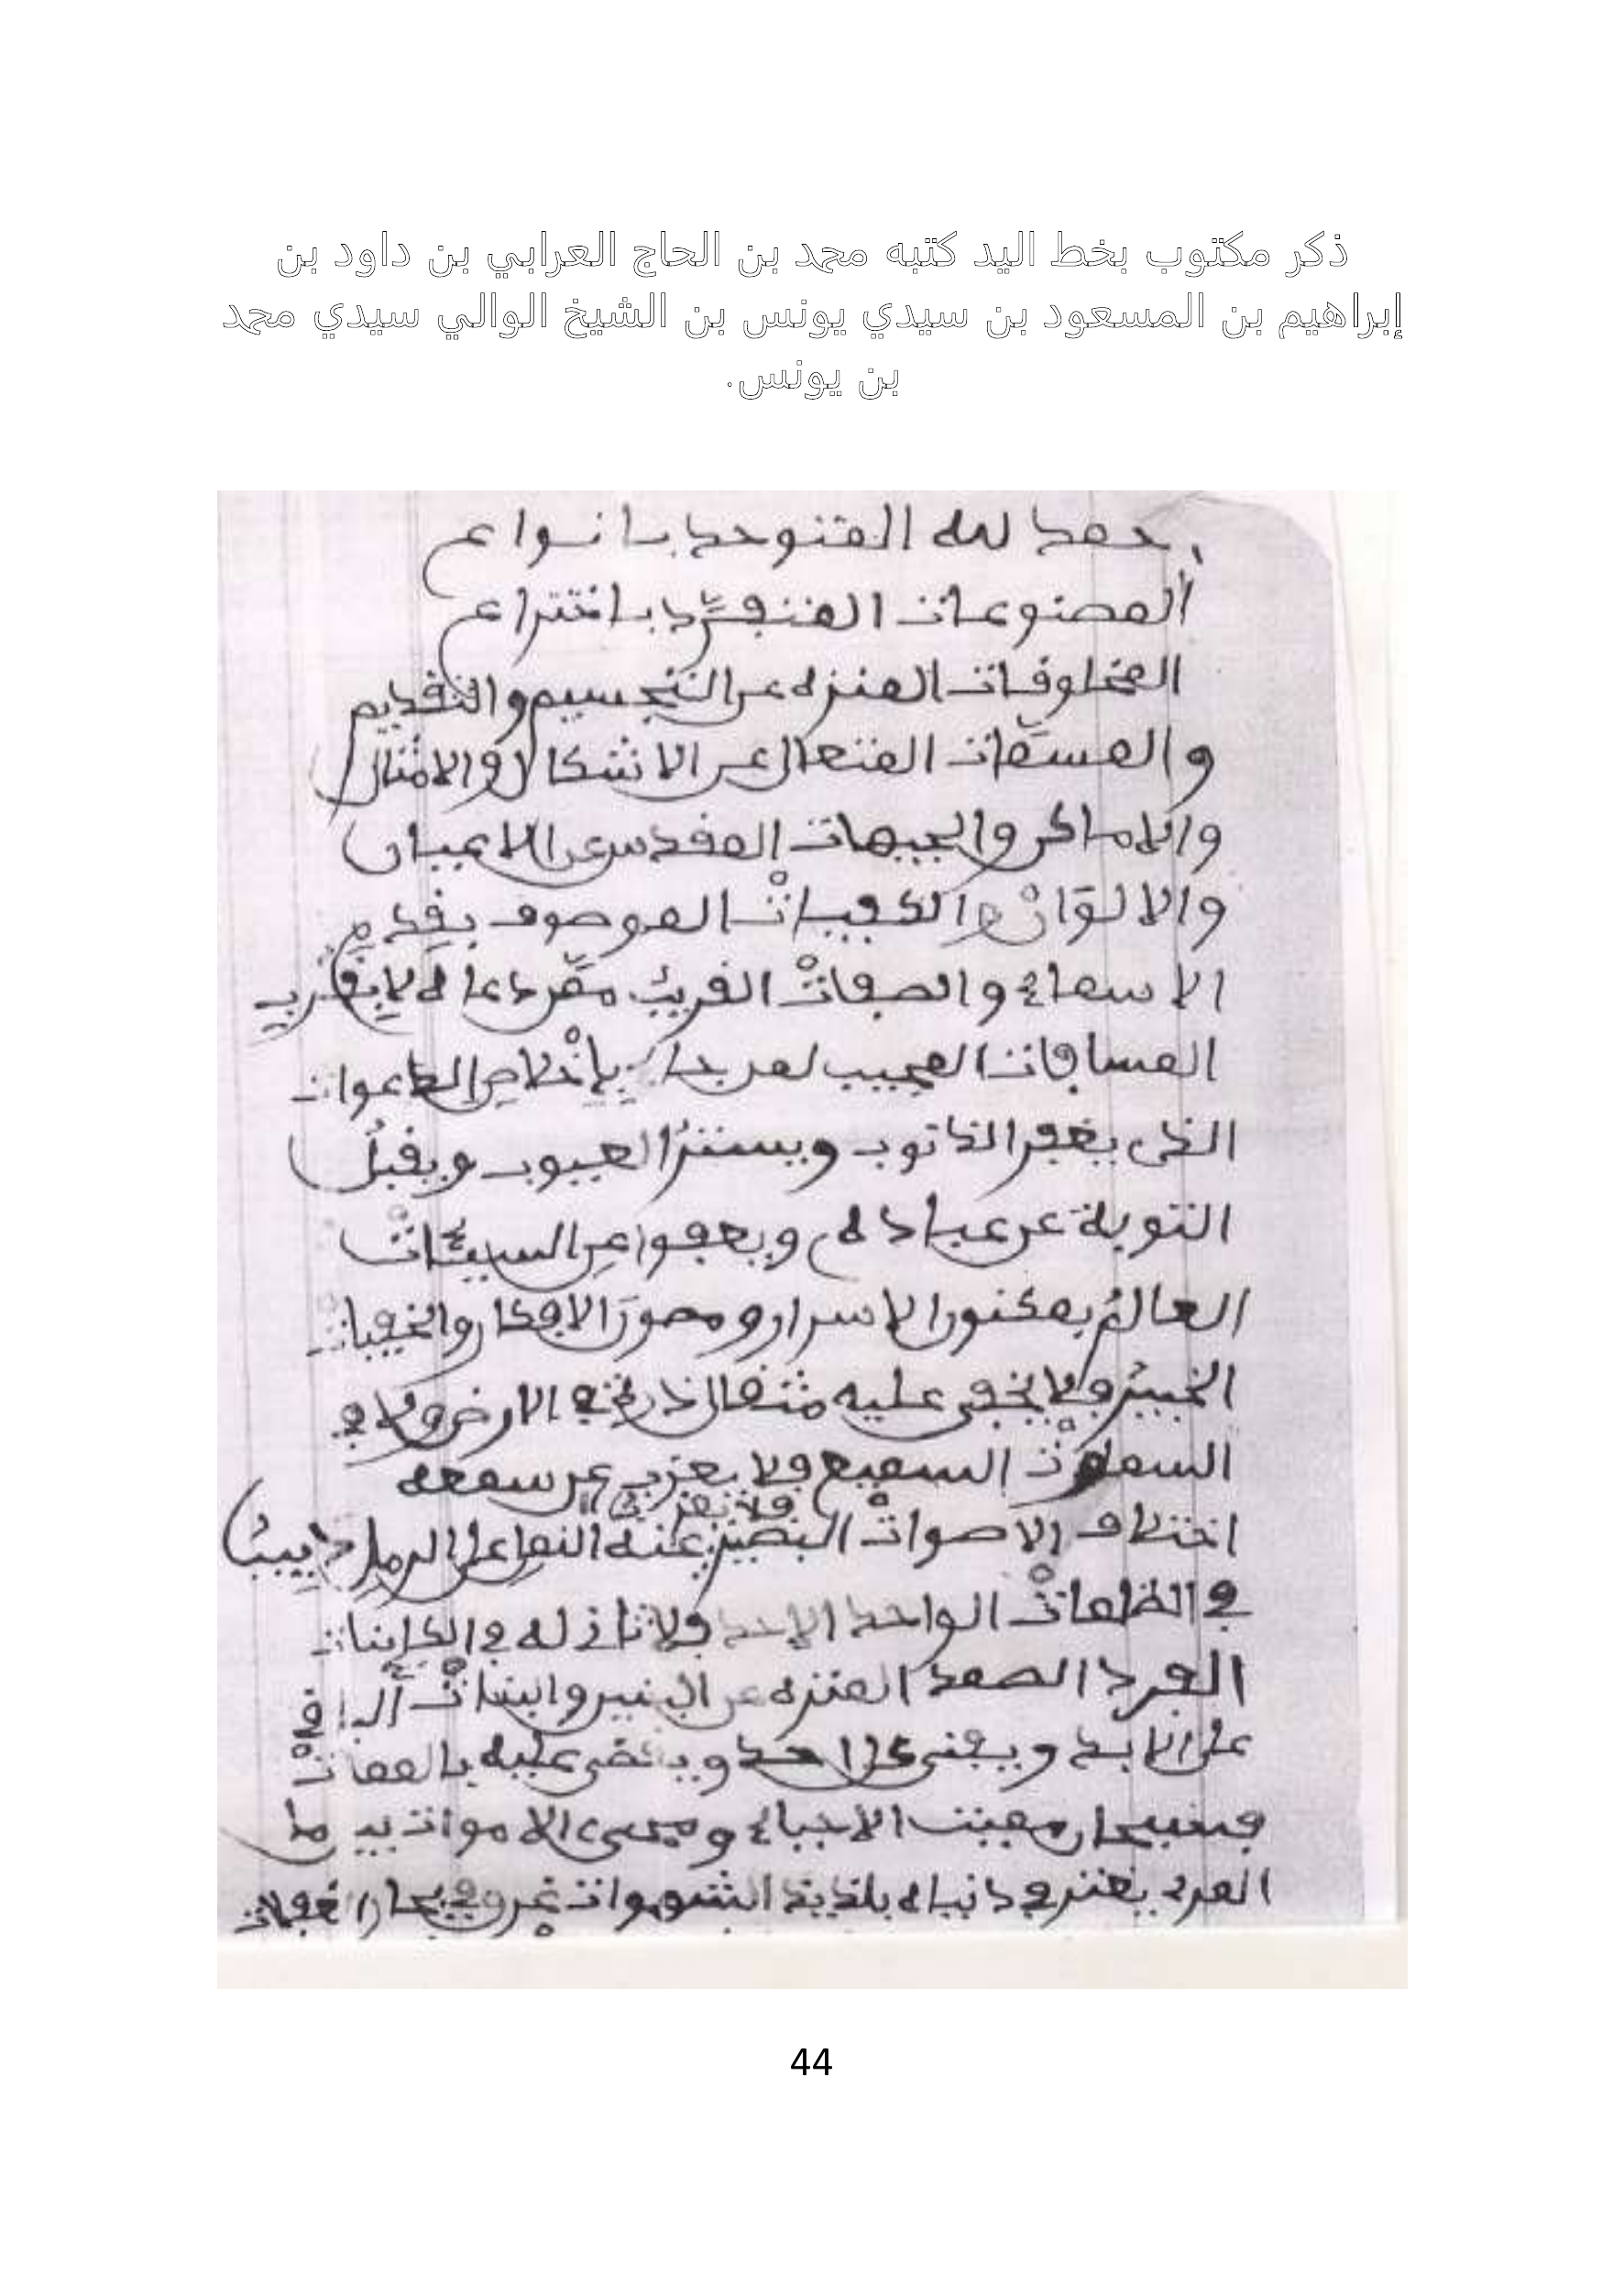 ذكر مكتوب بخط اليد كتبه محمد بن الحاج العرابي بن داود بن
إبراهيم بن المسعود بن سيدي يونس بن الشيخ الوالي سيدي محمد
بن يونس.
حمد لله المتوحد بانواع
المصنوعات المنفرد باختراع
المخلوفات المنزه عن التجسيم والتقديم
والمسمّات المتعال عن الاشكال والامثال
والاماكن والجيهات المقدس عن الاعيان
والالوان والكيفيات الموصوف بقدم
الاسماء والصفات القريب
المسافات المجيب بإخلاص الدعوات
الذي يغفر الذنوب ويستر العيوب ويقبل
التوبة عن عباده ويعفوا عن السيئات
العالم بمكنون الاسرار ومصور الافكار والخفيات
الخبير ولا يخفى عليه مثقال ذرة في الارض ولا في
السموات السميع فلا يعزب عن سمعه
اختلاف الاصوات البصير عنه النمل على الرمل دبيب
في الظلمات الواحد الاحد فلا له في الكاينات
الفرد الصمد المنزه عن البنين والبنات الباقي
على الابد ويفنى كل احد ويقضى عليه بالممات
فسبحان مميت الاحياء ومحيى الاموات
المرء يغتر في دنياه بلذيذ الشهوات غرو في بحار
44